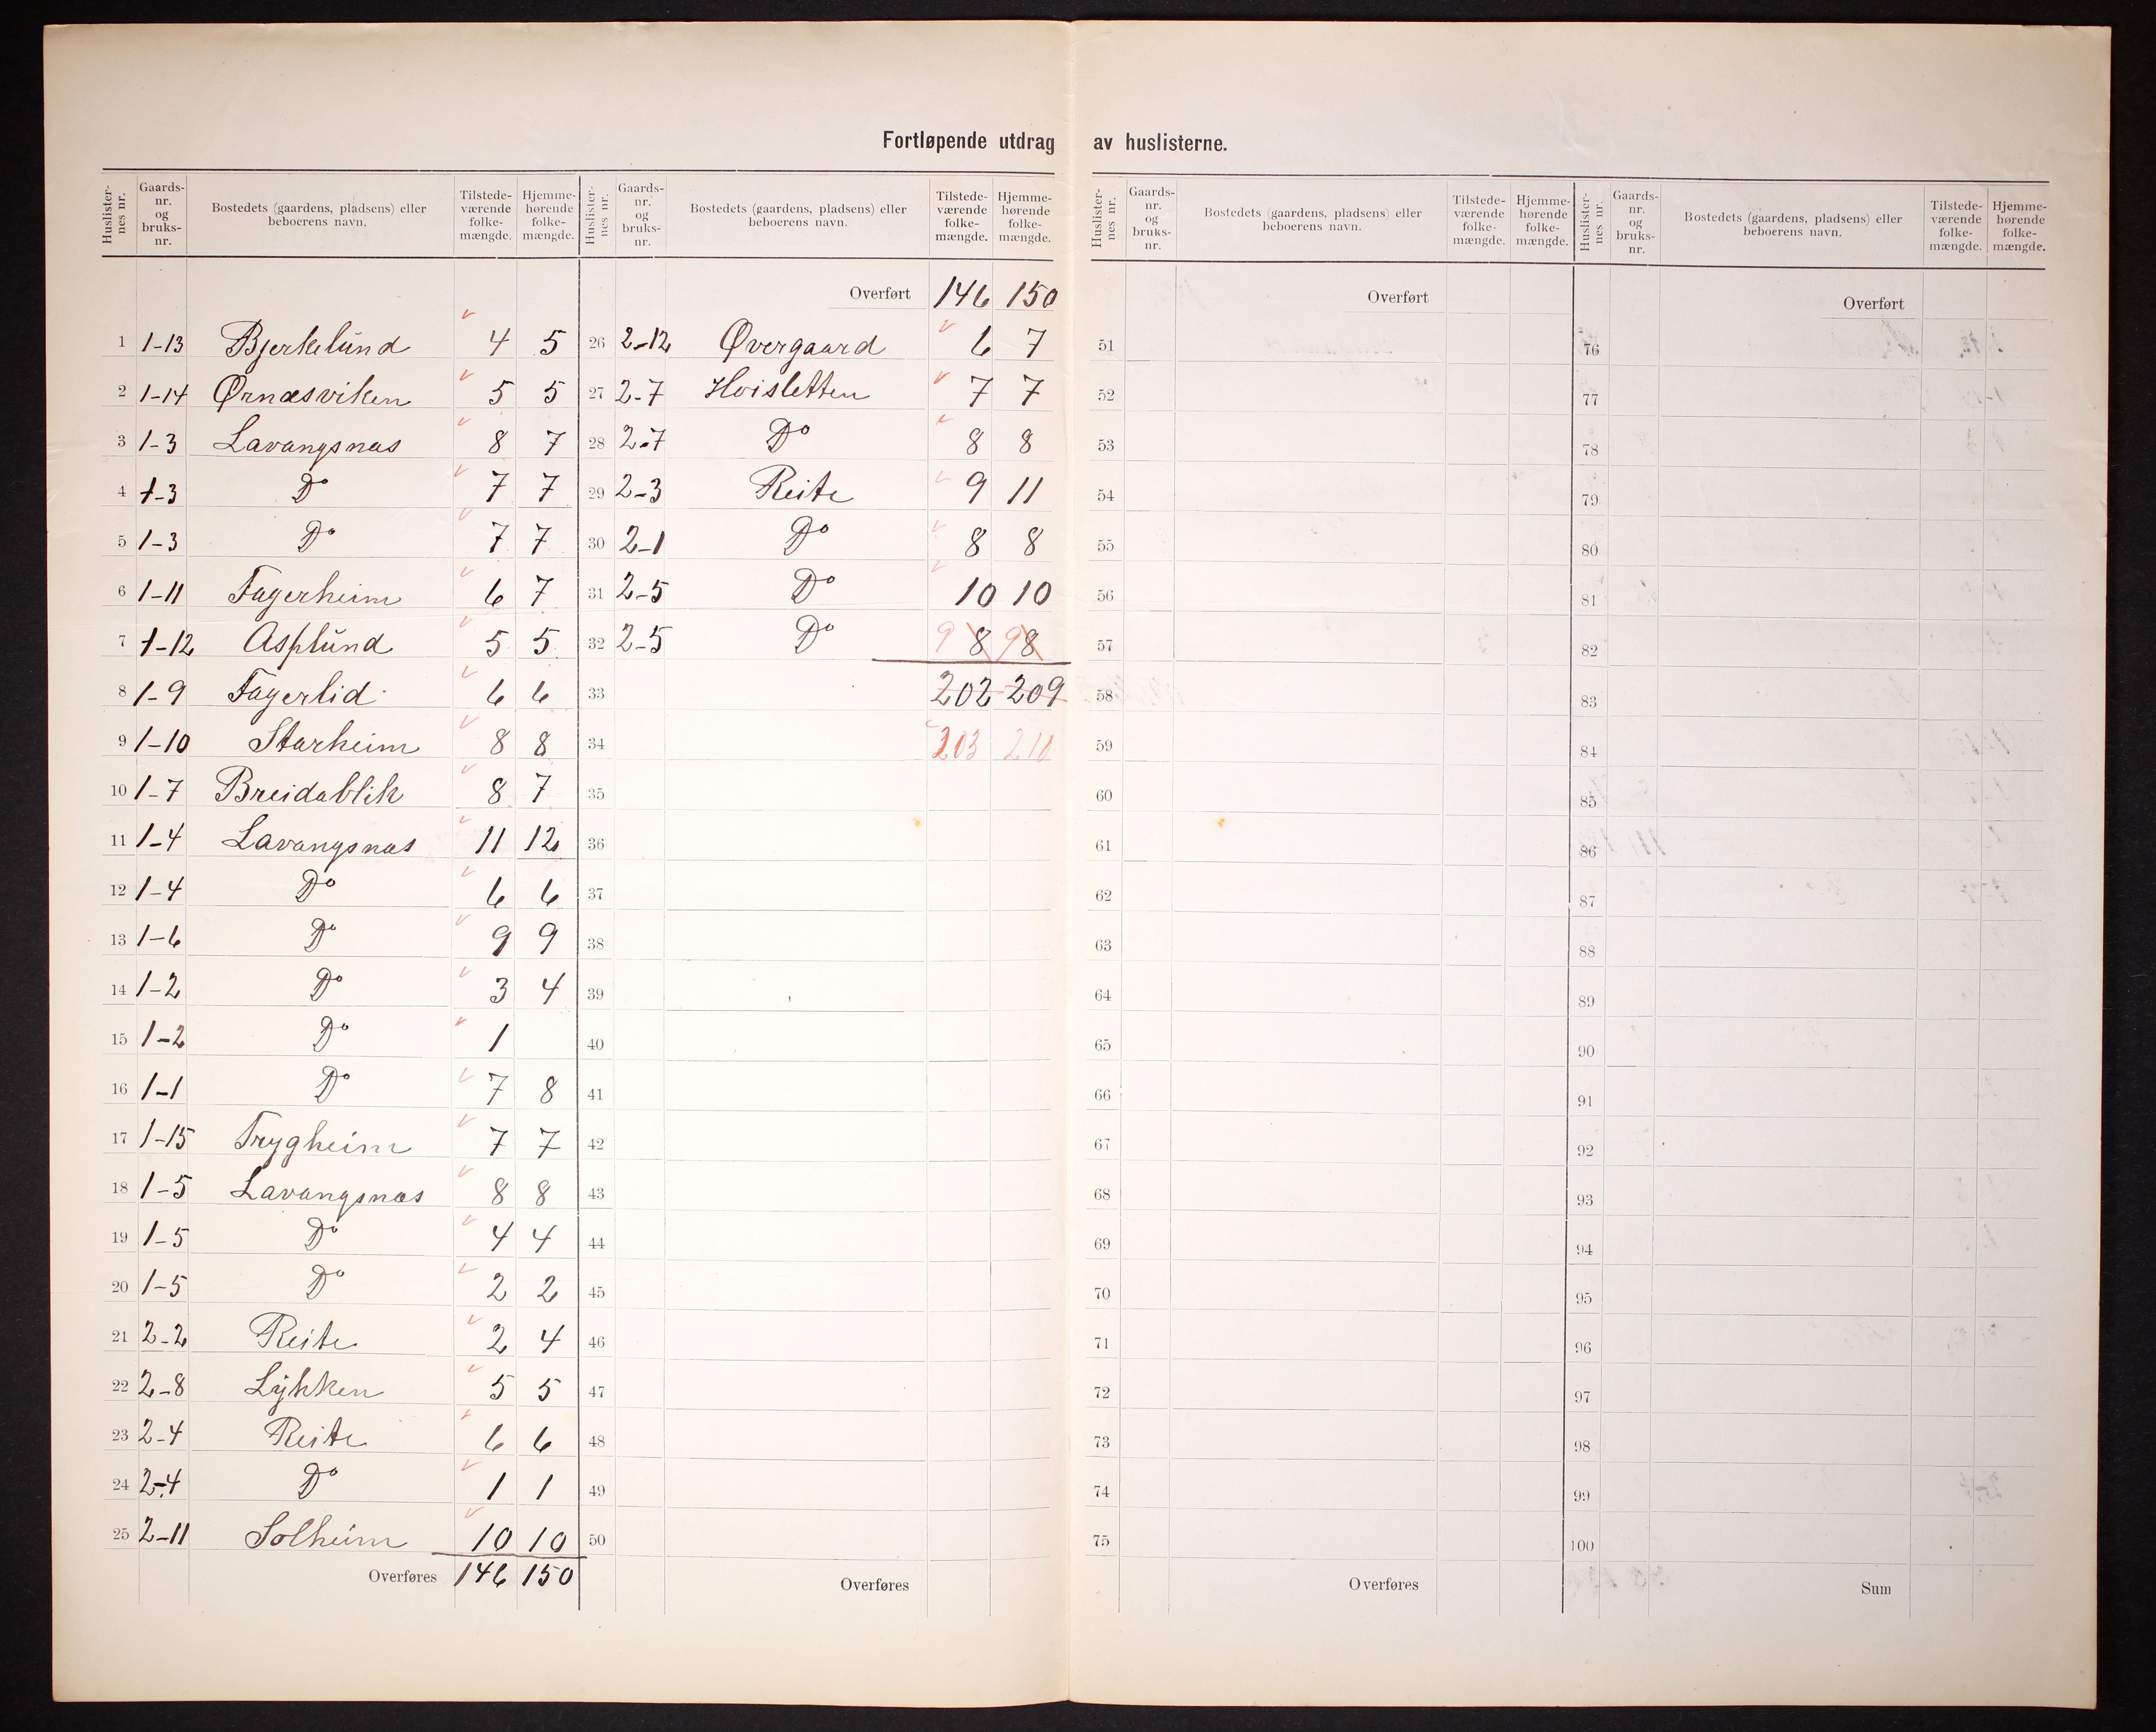 Fortløpende utdrag av huslisterne.
Huslisternes nr. | Gaardsnr. og bruksnr. | Bostedets (gaardens, pladsens) eller beboerens navn. | Tilstedeværende folkemængde. | Hjemmehørende folkemængde.
1 1-13 Bjerkelund 4 5
2 1-14 Ørnæsviken 5 5
3 1-3 Lavangsnæs 8 7
4 1-3 Do 7 7
5 1-3 Do 7 7
6 1-11 Fagerheim 6 7
7 1-12 Asplund 5 5
8 1-9 Fagerlid 6 6
9 1-10 Starheim 8 8
10 1-7 Breidablik 8 7
11 1-4 Lavangsnæs 11 12
12 1-4 Do 6 6
13 1-6 Do 9 9
14 1-2 Do 3 4
15 1-2 Do 1
16 1-1 Do 7 8
17 1-15 Trygheim 7 7
18 1-5 Lavangsnæs 8 8
19 1-5 Do 4 4
20 1-5 Do 2 2
21 2-2 Reite 2 4
22 2-8 Lykken 5 5
23 2-4 Reite 6 6
24 2-4 Do 1 1
25 2-11 Solheim 10 10
Overføres 146 150
Huslisternes nr. | Gaardsnr. og bruksnr. | Bostedets (gaardens, pladsens) eller beboerens navn. | Tilstedeværende folkemængde. | Hjemmehørende folkemængde.
Overført 146 150
26 2-12 Øvergaard 6 7
27 2-7 Hoisletten 7 7
28 2-7 Do 8 8
29 2-3 Reite 9 11
30 2-1 Do 8 8
31 2-5 Do 10 10
32 2-5 Do 9 8 9 8
33 202 209
34 203 210
35
36
37
38
39
40
41
42
43
44
45
46
47
48
49
50
Overføres
Huslisternes nr. | Gaardsnr. og bruksnr. | Bostedets (gaardens, pladsens) eller beboerens navn. | Tilstedeværende folkemængde. | Hjemmehørende folkemængde.
Overført
51
52
53
54
55
56
57
58
59
60
61
62
63
64
65
66
67
68
69
70
71
72
73
74
75
Overføres
Huslisternes nr. | Gaardsnr. og bruksnr. | Bostedets (gaardens, pladsens) eller beboerens navn. | Tilstedeværende folkemængde. | Hjemmehørende folkemængde.
Overført
76
77
78
79
80
81
82
83
84
85
86
87
88
89
90
91
92
93
94
95
96
97
98
99
100
Sum